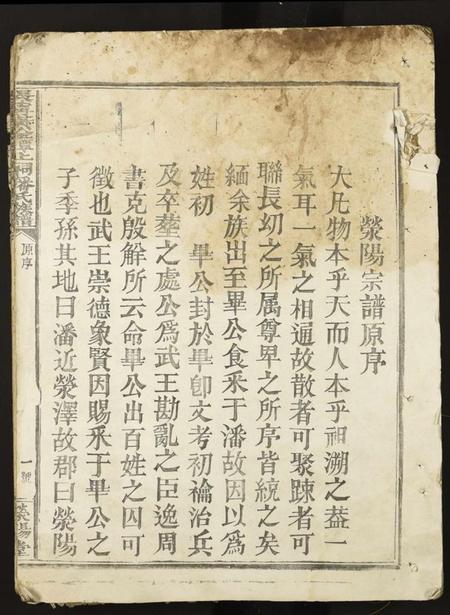 滎陽宗譜原序
大凡物本乎天而人本乎祖溯之葢一
氣耳一氣之相通故散者可聚踈者可
聯長幼之所属尊卑之所序皆統之矣
緬余族出至畢公食釆于潘故因以爲
姓初 畢公封於畢卽文考初禴治兵
及卒塟之處公爲武王勘亂之臣逸周
書克殷解所云命畢公出百姓之囚可
徵也武王崇德象賢因賜釆于畢公之
子季孫其地曰潘近滎澤故郡曰滎陽
上祠潘氏族譜
原序
一號
滎陽堂